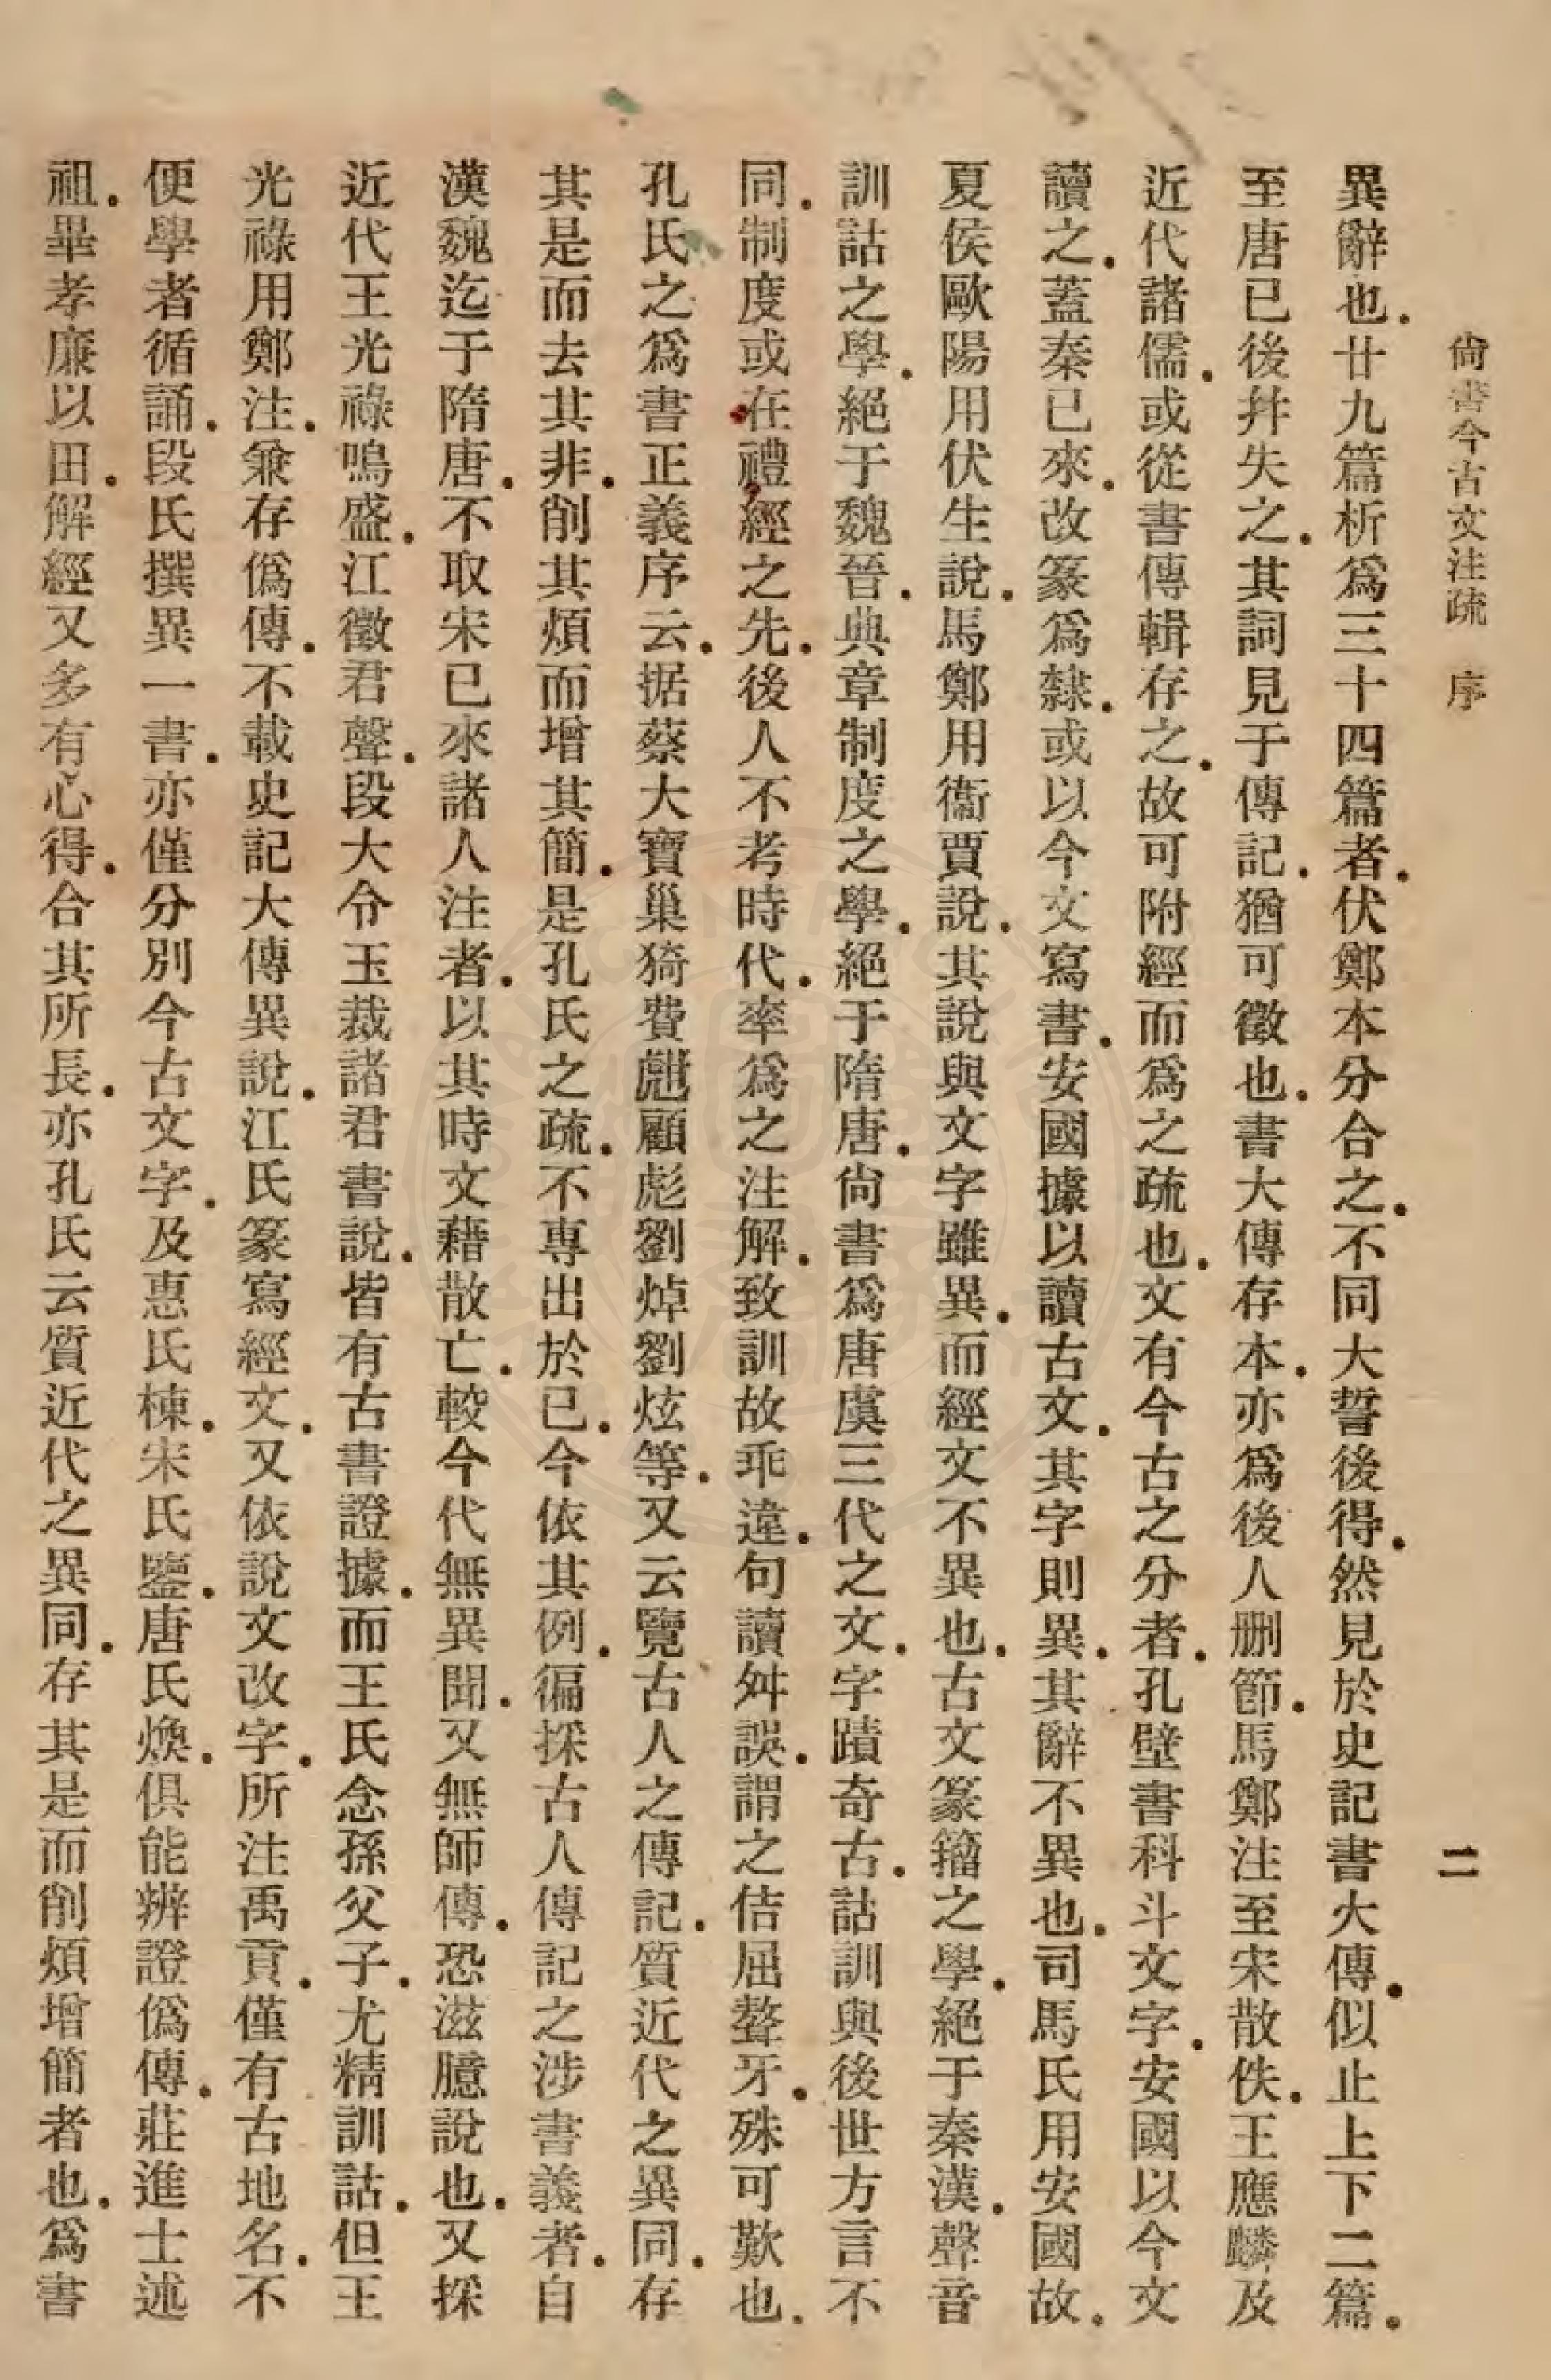 尙書今古文注疏　序　二
異辭也．廿九篇析爲三十四篇者．伏鄭本分合之．不同大誓後得．然見於史記書大傳．似止上下二篇．
至唐已後幷失之．其詞見于傳記．猶可徵也．書大傳存本．亦爲後人刪節．馬鄭注至宋散佚．王應麟及
近代諸儒．或從書傳輯存之．故可附經而爲之疏也．文有今古之分者．孔壁書科斗文字．安國以今文
讀之．蓋秦已來．改篆爲隸．或以今文寫書．安國據以讀古文．其字則異．其辭不異也．司馬氏用安國故．
夏侯歐陽用伏生說．馬鄭用衞賈說．其說與文字雖異．而經文不異也．古文篆籀之學．絕于秦漢．聲音
訓詁之學．絕于魏晉．典章制度之學．絕于隋唐．尙書爲唐虞三代之文．字蹟奇古．詁訓與後世方言不
同．制度或在禮經之先．後人不考時代．率爲之注解．致訓故乖違．句讀舛誤．謂之佶屈聱牙．殊可歎也．
孔氏之爲書正義序云．据蔡大寶巢猗費甝顧彪劉焯劉炫等．又云覽古人之傳記．質近代之異同．存
其是而去其非．削其煩而增其簡．是孔氏之疏．不專出於己．今依其例．徧採古人傳記之涉書義者．自
漢魏迄于隋唐．不取宋已來諸人注者．以其時文藉散亡．較今代無異聞．又無師傳．恐滋臆說也．又採
近代王光祿鳴盛．江徵君聲．段大令玉裁諸君書說．皆有古書證據．而王氏念孫父子．尤精訓詁．但王
光祿用鄭注．兼存僞傳．不載史記大傳異說．江氏篆寫經文．又依說文改字．所注禹貢．僅有古地名．不
便學者循誦．段氏撰異一書．亦僅分別今古文字．及惠氏棟．宋氏鑒．唐氏煥．俱能辨證僞傳．莊進士述
祖．畢孝廉以田．解經又多有心得．合其所長．亦孔氏云質近代之異同．存其是而削煩增簡者也．爲書